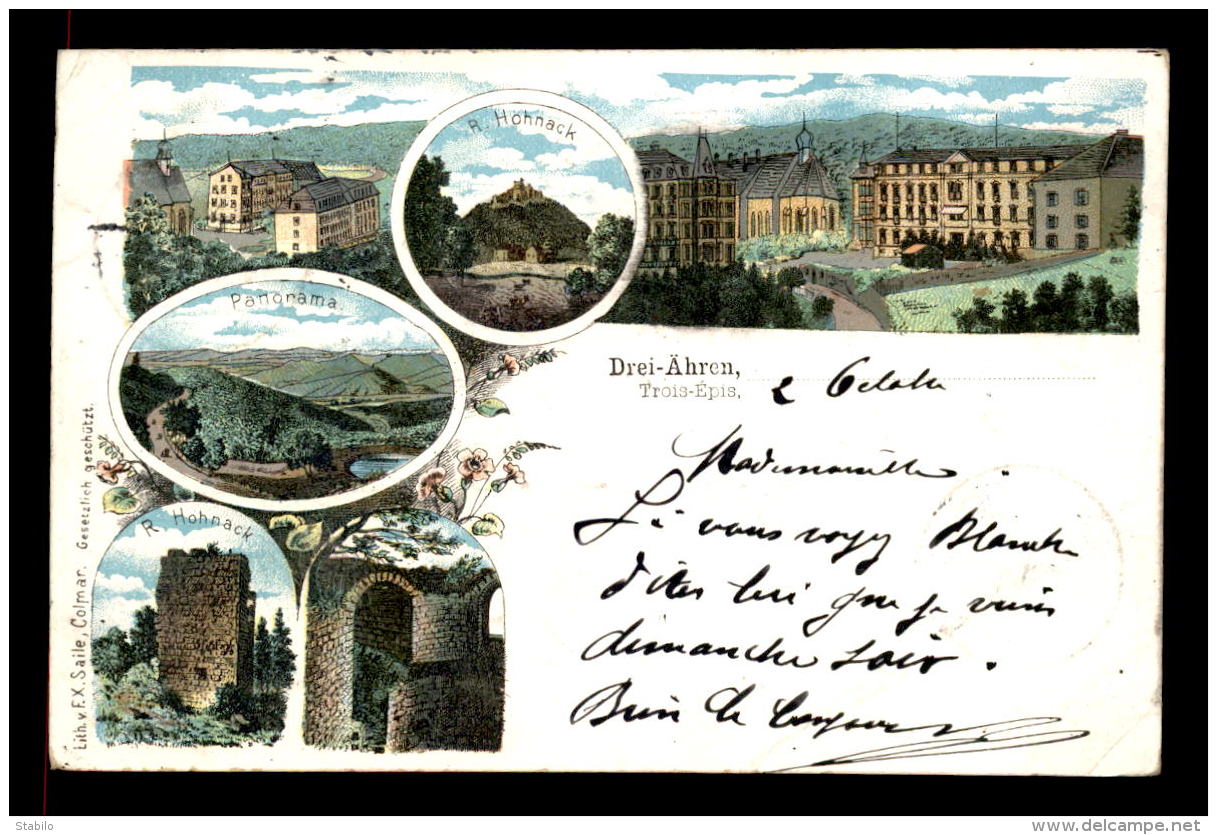 R. Hohnack
Panorama.
R. Hohnack
Drei-Ähren,
Trois-Épis, 2 Octobre
Mademoiselle
Si vous voyez Blanche
dites lui que je viens
dimanche soir.
Bien le bonjour
Lith. v. F.X. Saile, Colmar. Gesetzlich geschützt.
Stabilo
www.delcampe.net